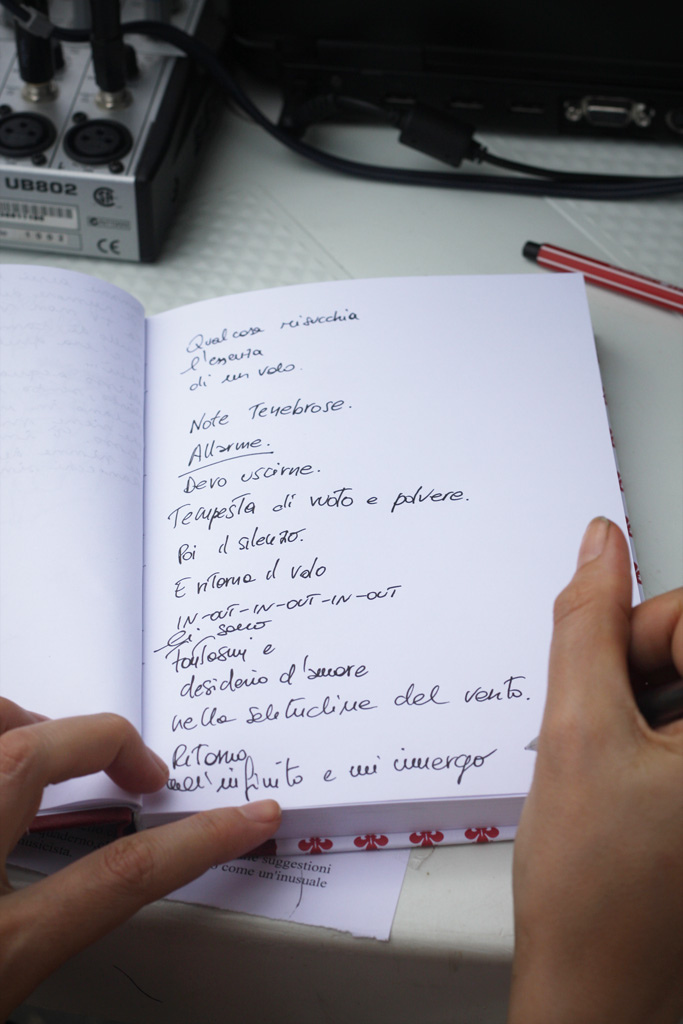 UB802
CE
Qualcosa risucchia
l'essenza
di un volo.
Note Tenebrose.
Allarme.
Devo uscirne.
Tempesta di vuoto e polvere.
Poi il silenzio.
E ritorna il volo
IN-OUT-IN-OUT-IN-OUT
Ci sono
fantasmi e
desiderio d'amore
nella solitudine del vento.
Ritorno
nell'infinito e mi immergo
suggestioni
come un'inusuale